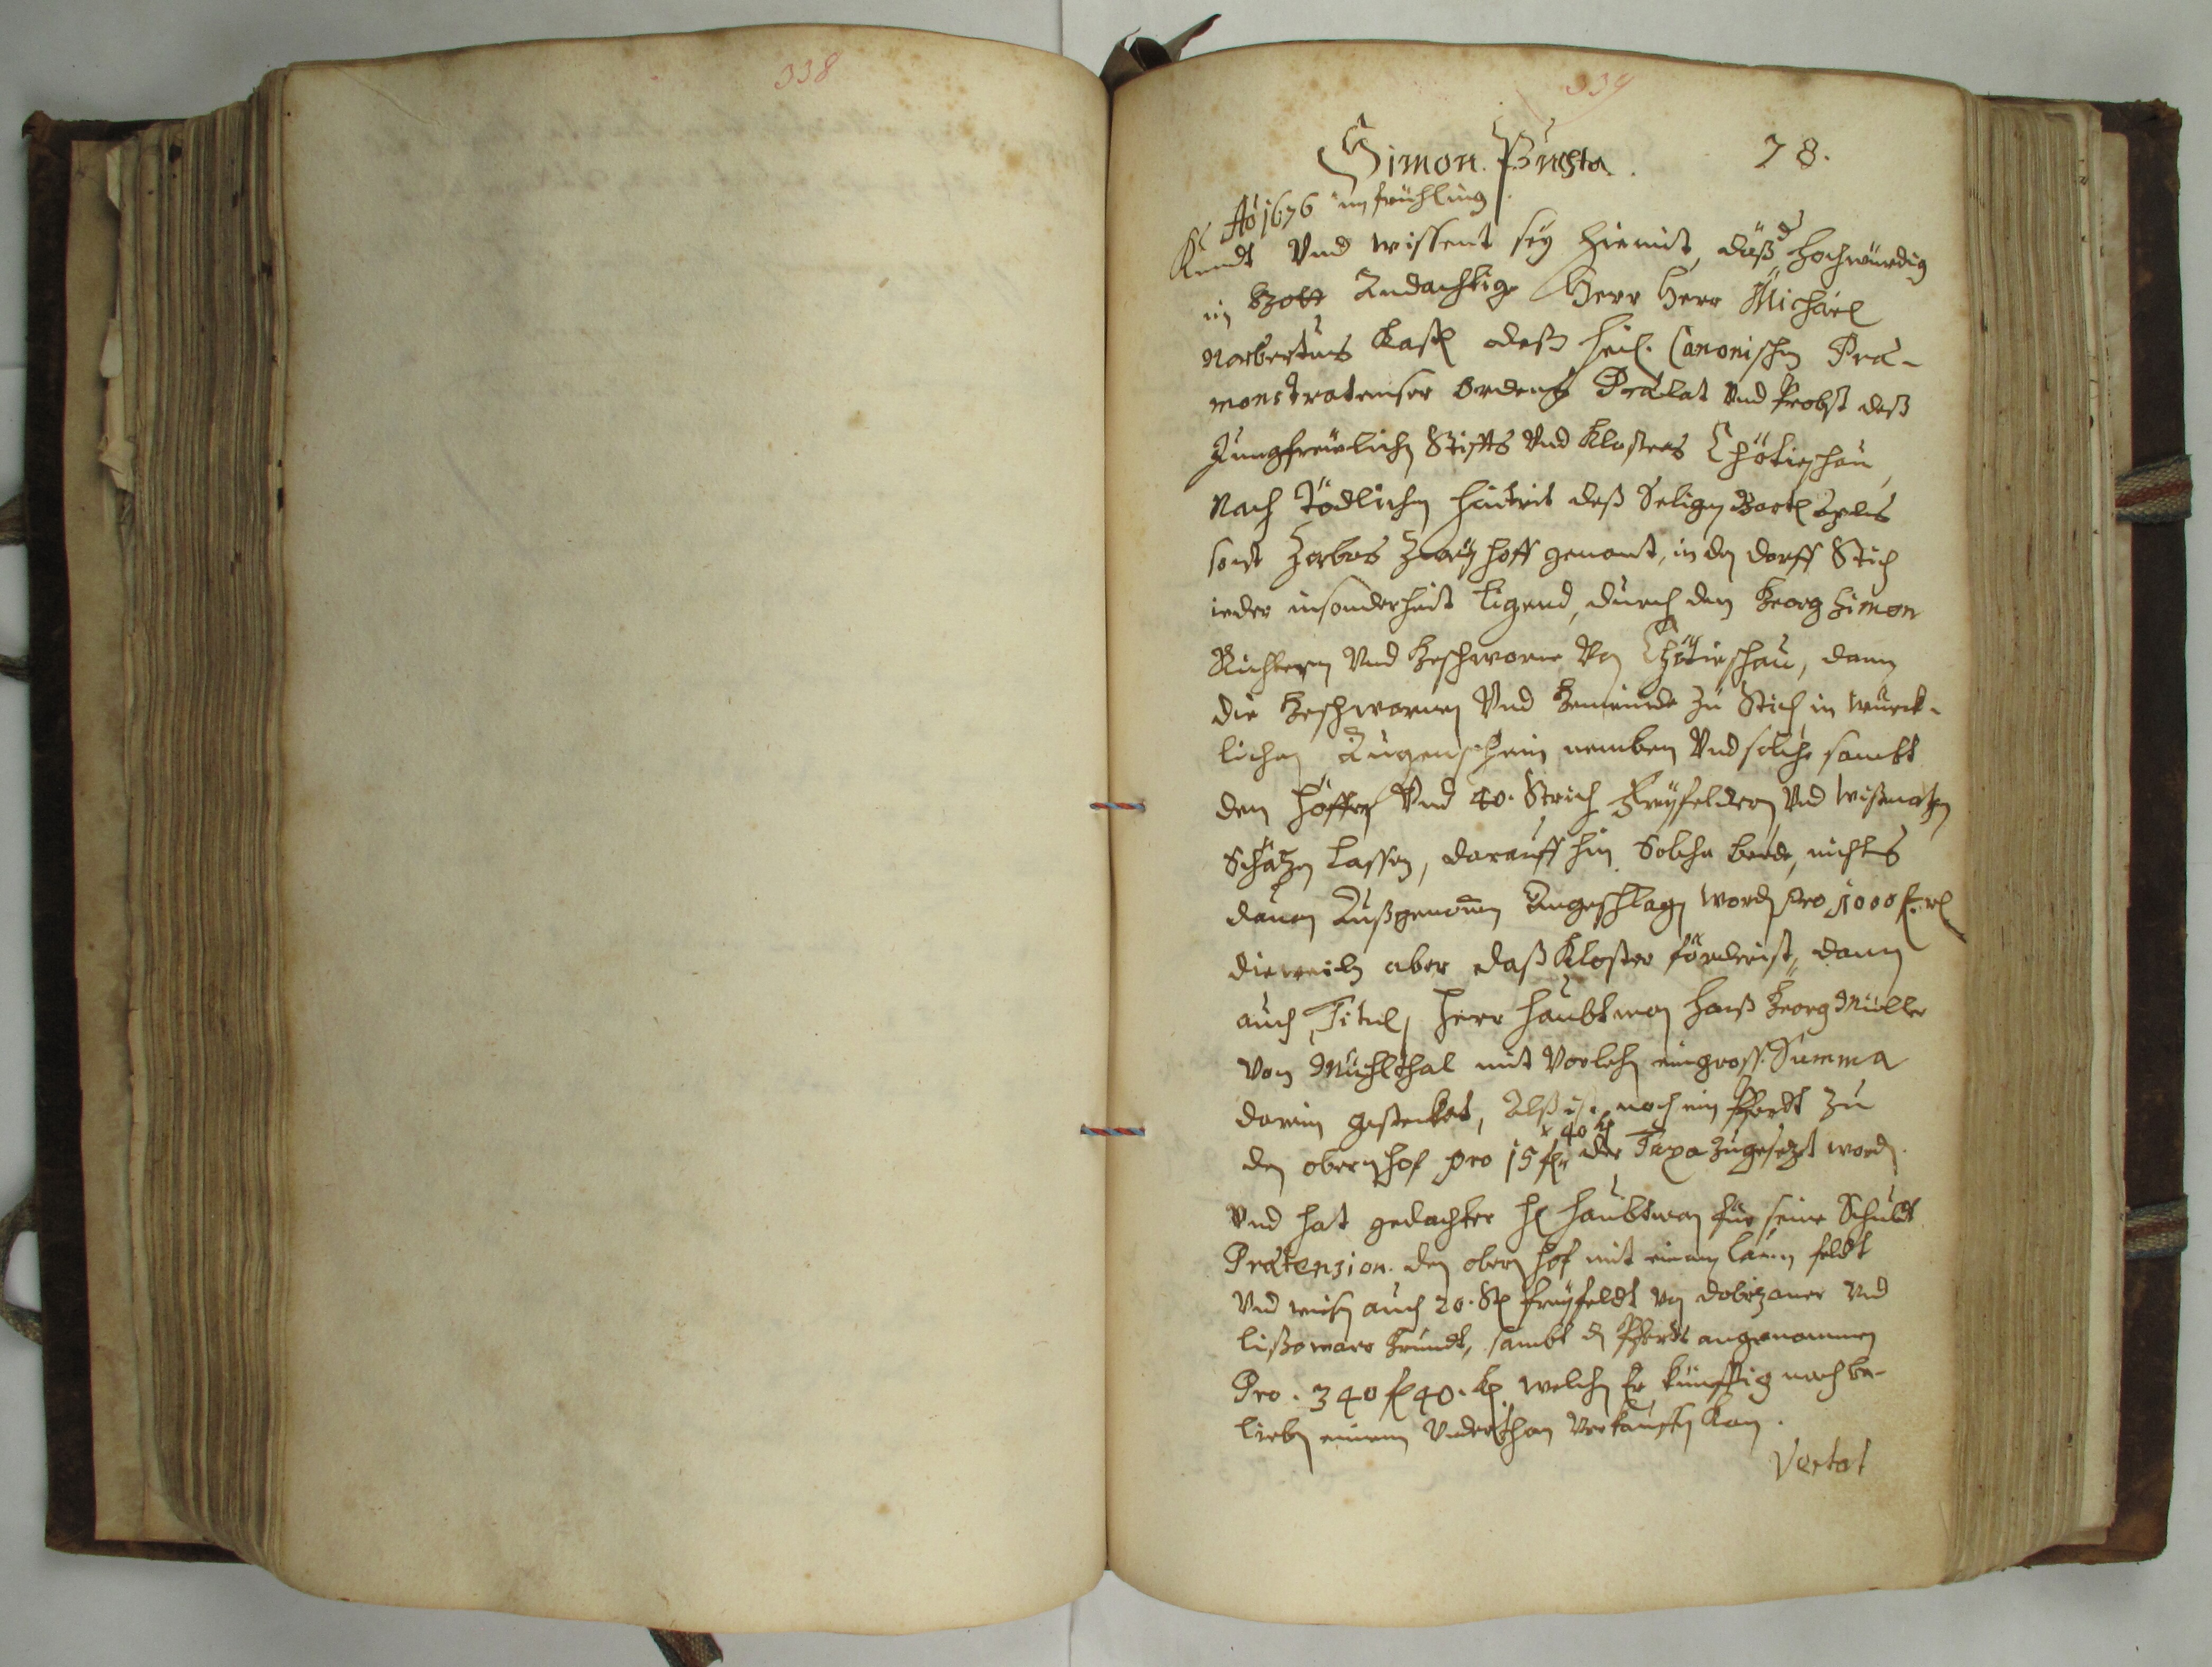 338
339
Simon. Puchta. 78.
Ao 1676 im frühling
Kundt Vnd wissent sey hiemit, daß d Hochwürdig
in Gott Andachtige Herr Herr Michäel
Norbertus Kastl deß heil. Canonischen Præ-
monstratenser Ordenß Prælat Vnd Probst deß
Jungfreülichen Stiffts Vnd Klosters Chötieschau,
Nach Tödlichen hintrit deß Seligen Bartl
sonst hoff genant, in den dorff Stich
ieder insonderheit ligend, durch den Georg Simon
Richtern Vnd Geschworne Von Chötieschau, dann
die Geschwornen Vnd Gemeinde zu Stich in würck-
lichen Augenschein nemben Vnd solche sambt
den Höffen Vnd 40. Strich Freyfeldern Vnd Wißmathen
Schätzen lassen, darauff hin Solche beede, nichts
dauon Außgenommen Angeschlagen worden pro 1000 f. rl
dieweiln aber daß Kloster förderist, dann
auch, Titul, Herr Haubtman Hanß Georg Müller
Von Mühlthal mit Vorlehen ein gross. Summa
darin gestecket, Alß ist noch ein Pferdt zu
x 40 kr
den obern hof pro 15 fl der Taxa zugesezt worden.
Vnd hat gedachter H Haubtman für seine Schuldt
Prætension. den obern hof mit einem lahn feldt
Vnd wiesen auch 20. Str freyfeldt von dobrzaner Vnd
lißowarer Gründt, sambt den Pferdt angenommen
Pro. 340 f 40. kr welchen Er künfftig nach be-
lieben einem Vnderthan Verkauffen kan.
Vertat